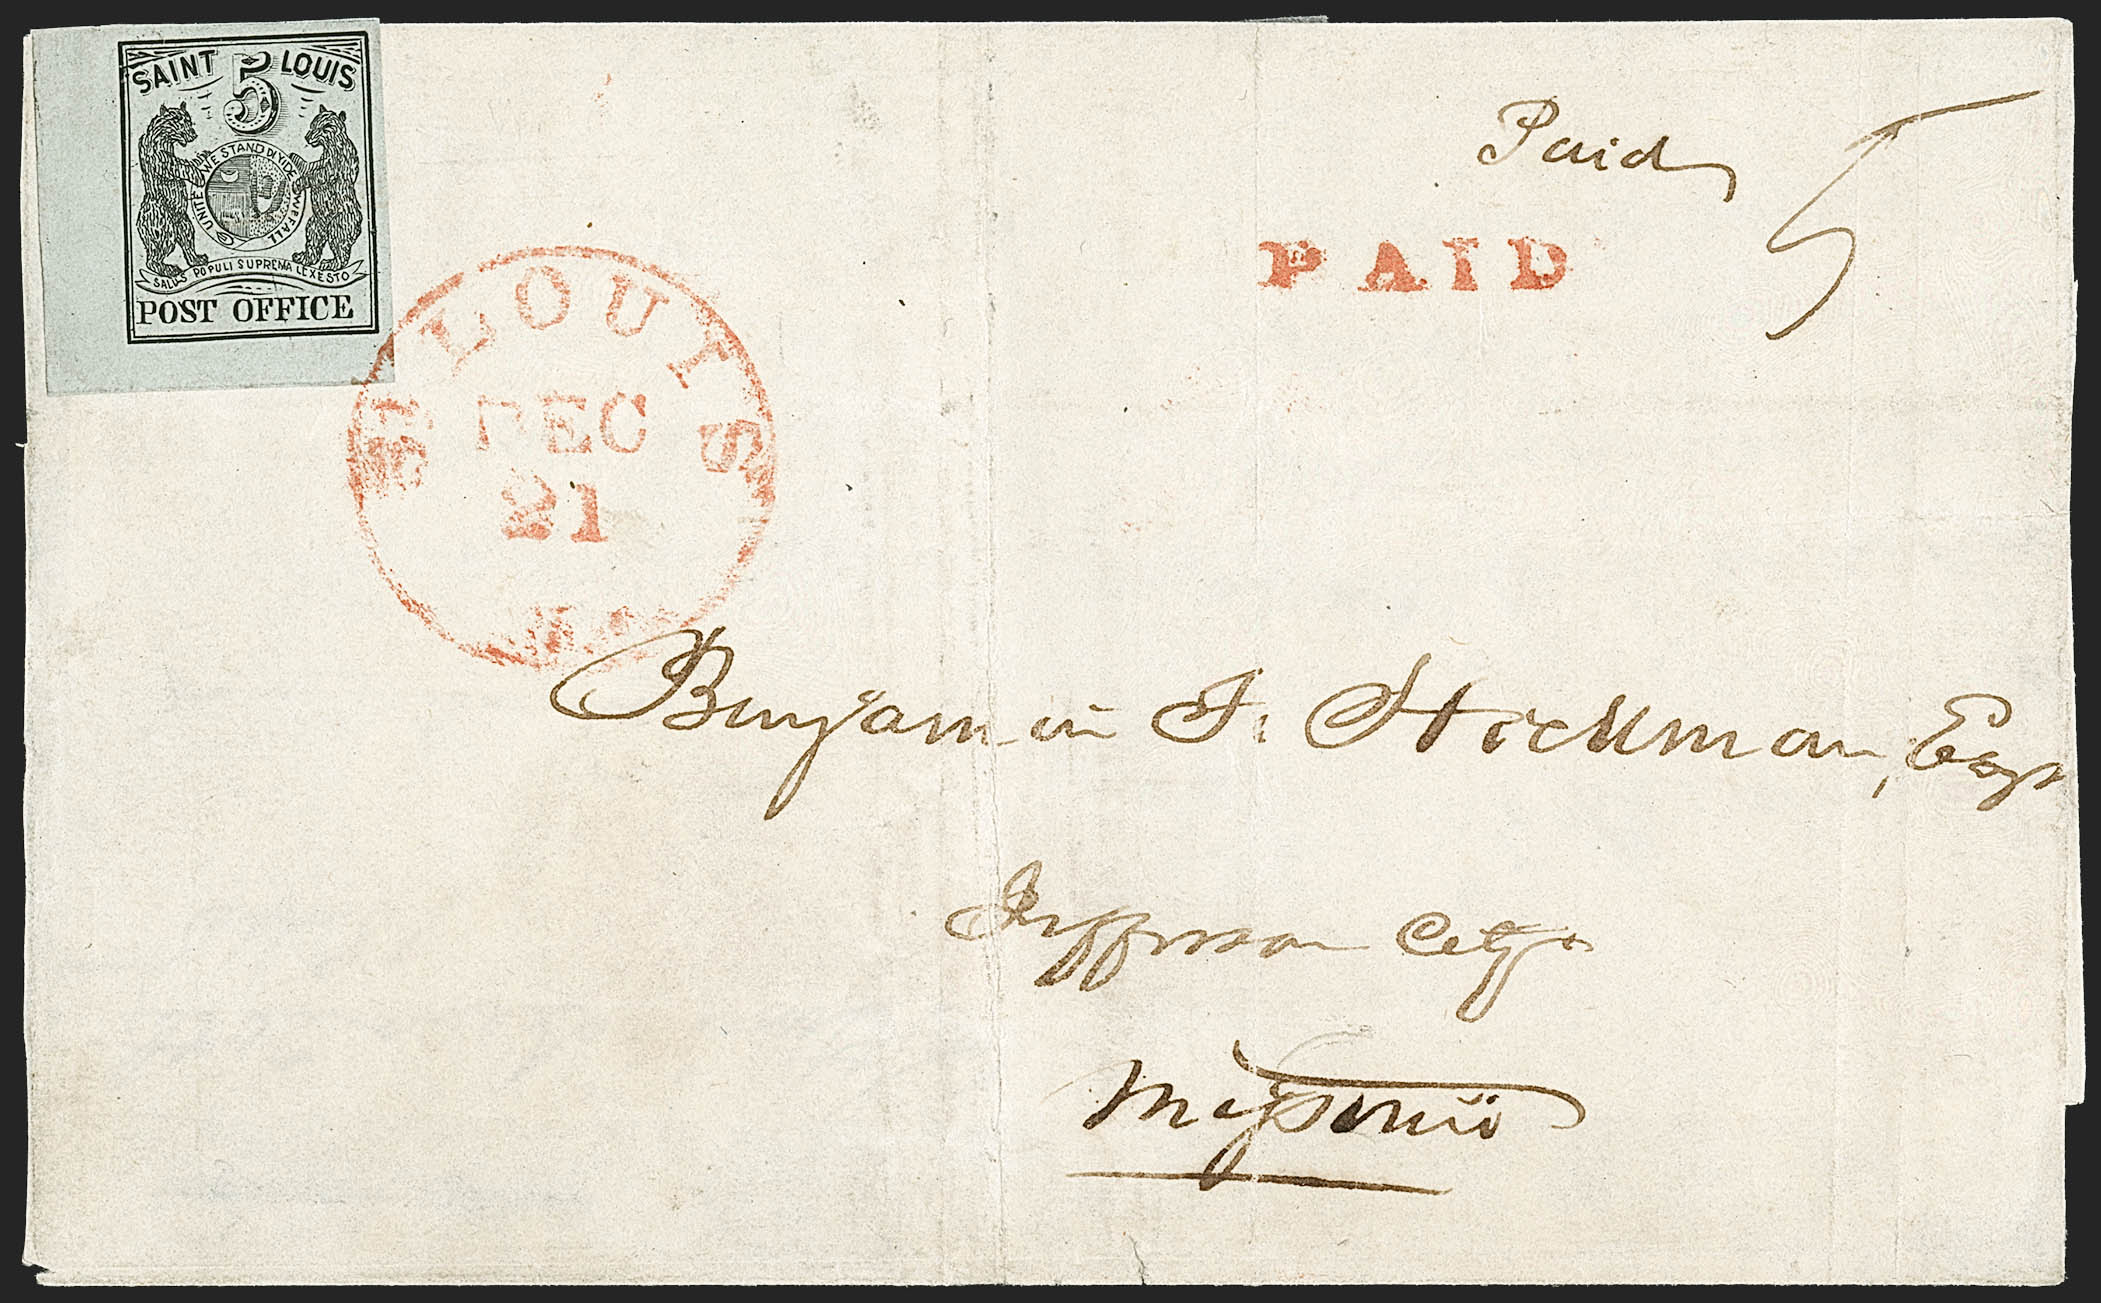 SAINT 5 LOUIS
UNITED WE STAND DIVIDED WE FALL
SALUS POPULI SUPREMA LEX ESTO
POST OFFICE
Paid 5
PAID
LOUIS
DEC
21
Benjamin F. Hickman, Esqr
Jefferson City
Missouri